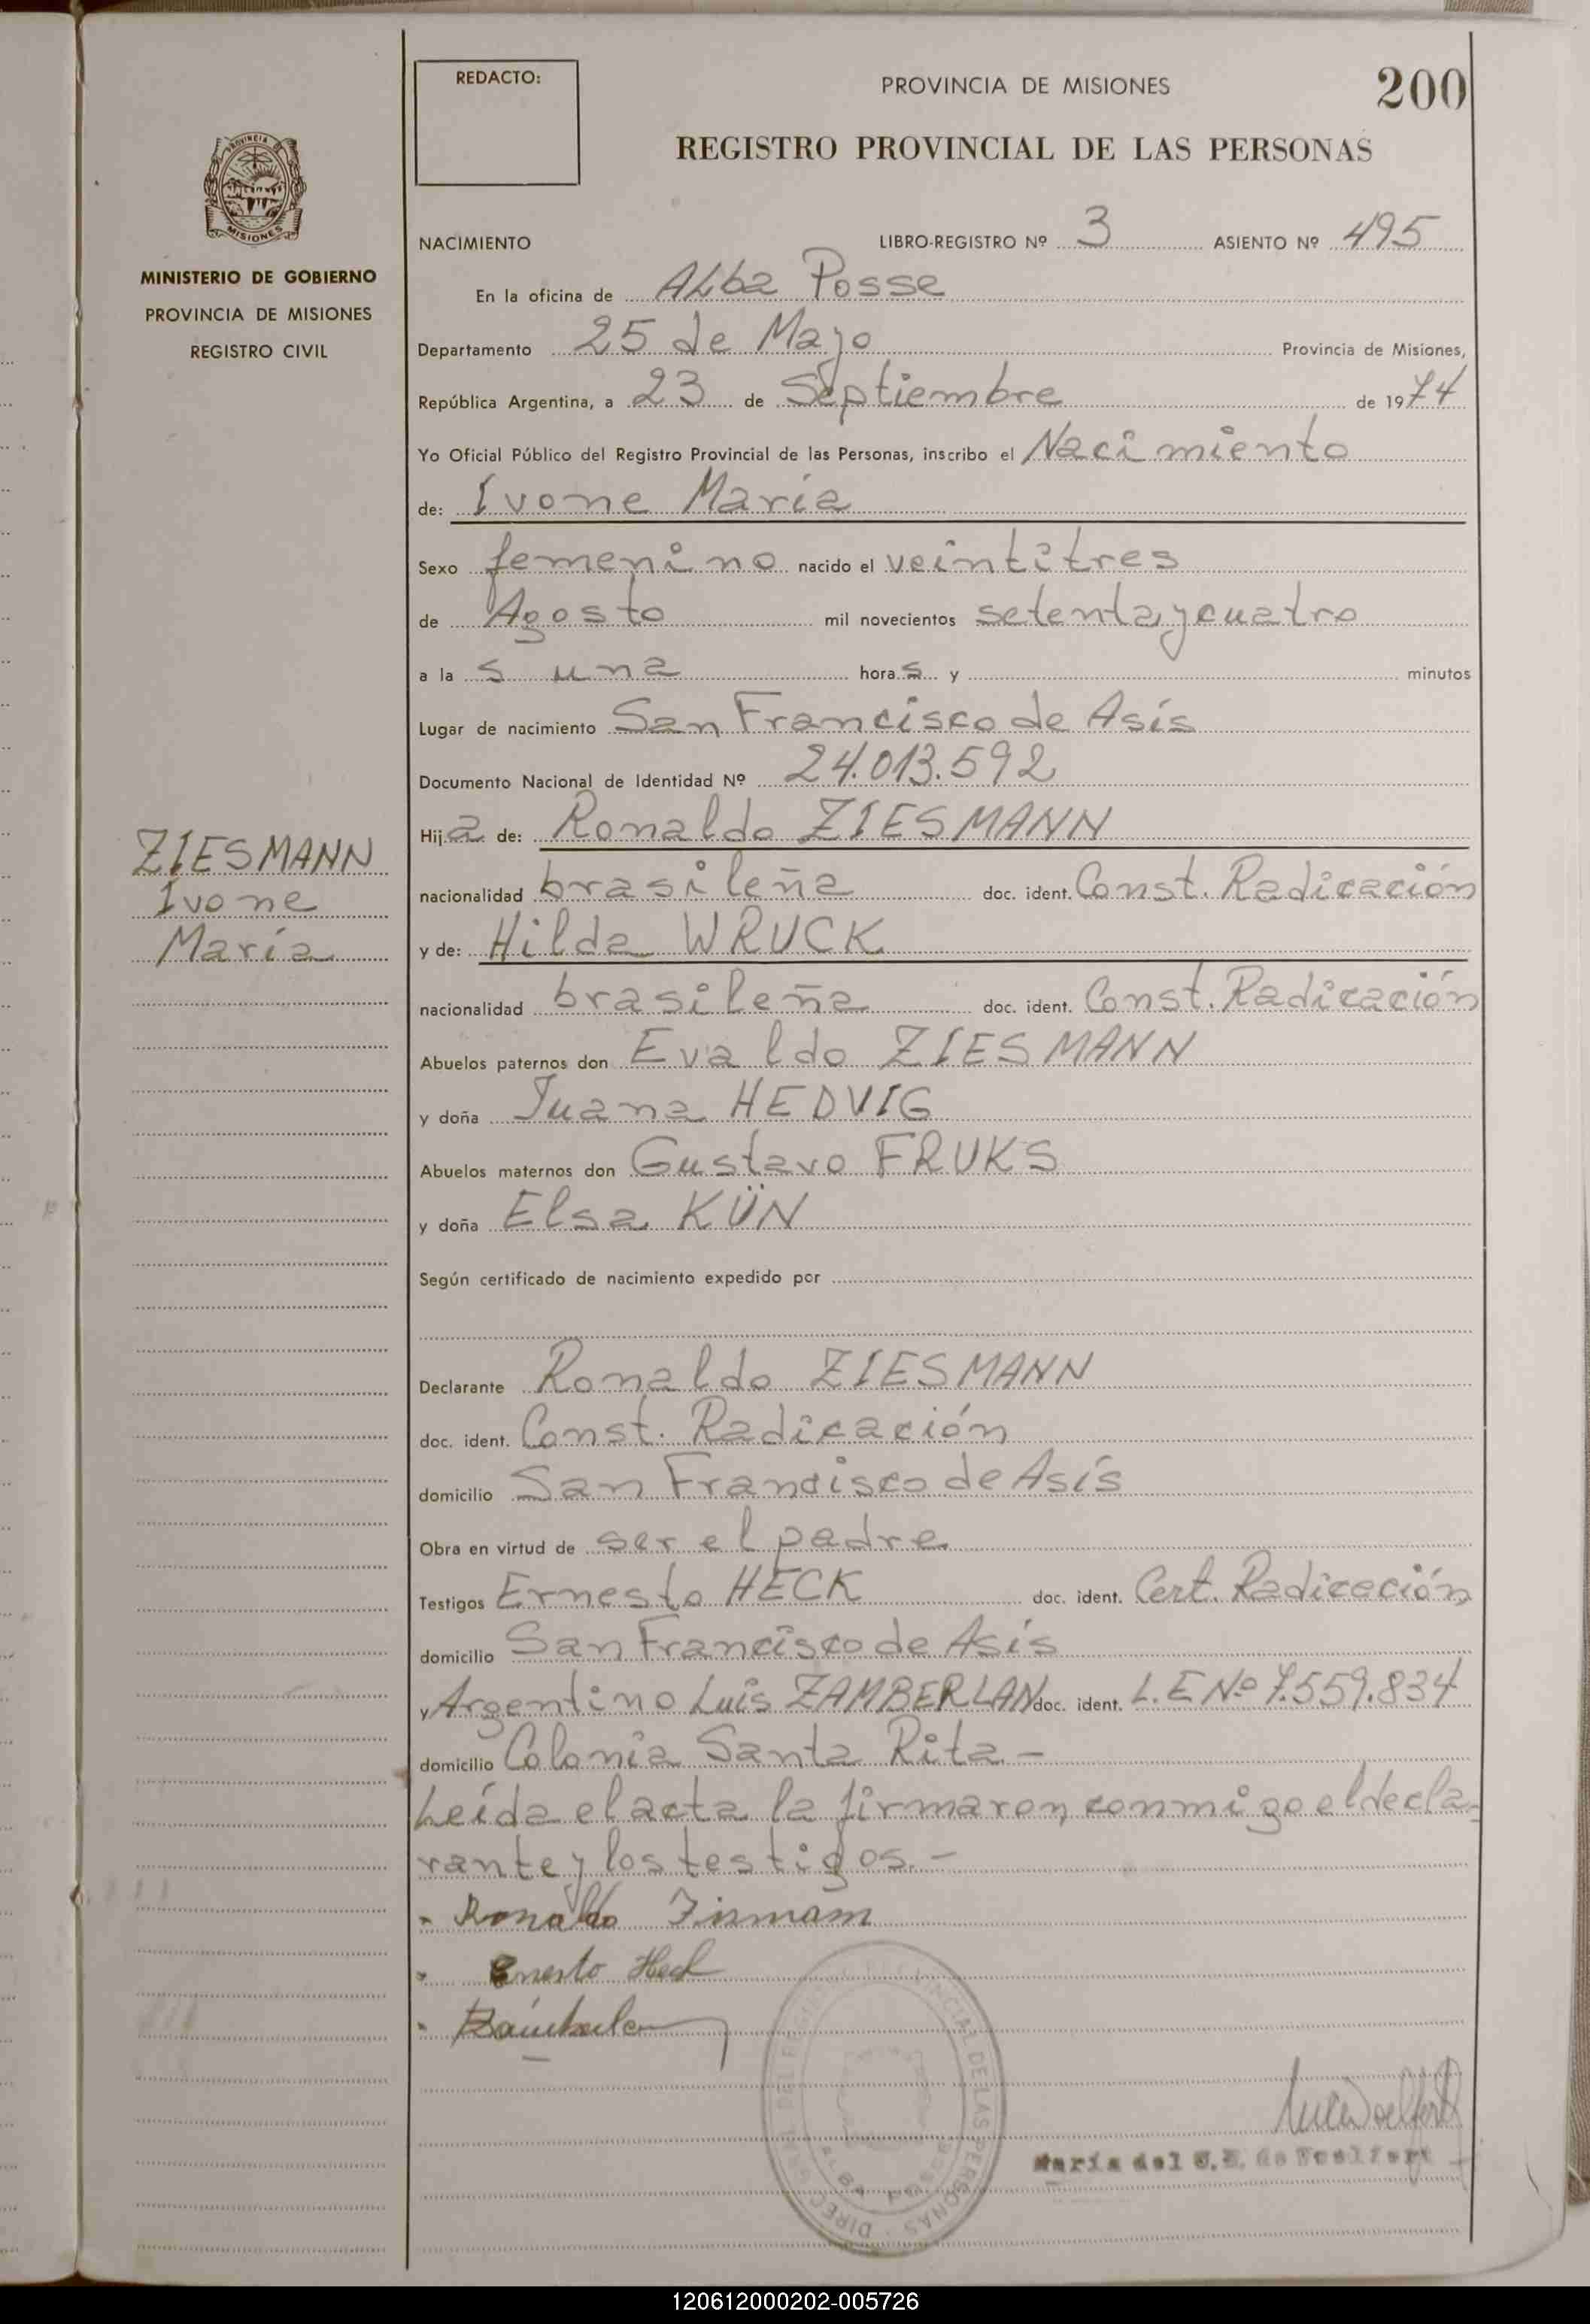 REDACTO:
PROVINCIA DE MISIONES
200
REGISTRO PROVINCIAL DE LAS PERSONAS
MISIONES
MINISTERIO DE GOBIERNO
PROVINCIA DE MISIONES
REGISTRO CIVIL
NACIMIENTO LIBRO-REGISTRO Nº 3 ASIENTO Nº 495
En la oficina de Alba Posse
Departamento 25 de Mayo Provincia de Misiones,
República Argentina, a 23 de Septiembre de 1974
Yo Oficial Público del Registro Provincial de las Personas, inscribo el Nacimiento
de: Ivone María
Sexo femenino nacido el veintitres
de Agosto mil novecientos setenta y cuatro
a la s una hora s y minutos
Lugar de nacimiento San Francisco de Asís
Documento Nacional de Identidad Nº 24.013.592
ZIESMANN
Ivone
María
Hija de: Ronaldo ZIESMANN
nacionalidad brasileña doc. ident. Const. Radicación
y de: Hilda WRUCK
nacionalidad brasileña doc. ident. Const. Radicación
Abuelos paternos don Evaldo ZIESMANN
y doña Juana HEDVIG
Abuelos maternos don Gustavo FRUKS
y doña Elsa KÜN
Según certificado de nacimiento expedido por
Declarante Ronaldo ZIESMANN
doc. ident. Const. Radicación
domicilio San Francisco de Asís
Obra en virtud de ser el padre
Testigos Ernesto HECK doc. ident. Cert. Radicación
domicilio San Francisco de Asís
y Argentino Luis ZAMBERLAN doc. ident. L.E Nº 7.559.834
domicilio Colonia Santa Rita.-
Leída el acta la firmaron conmigo el decla-
rante y los testigos.-
Ronaldo
Ernesto Heck
María del
DE LAS PERSONAS
ALBA POSSE
120612000202-005726